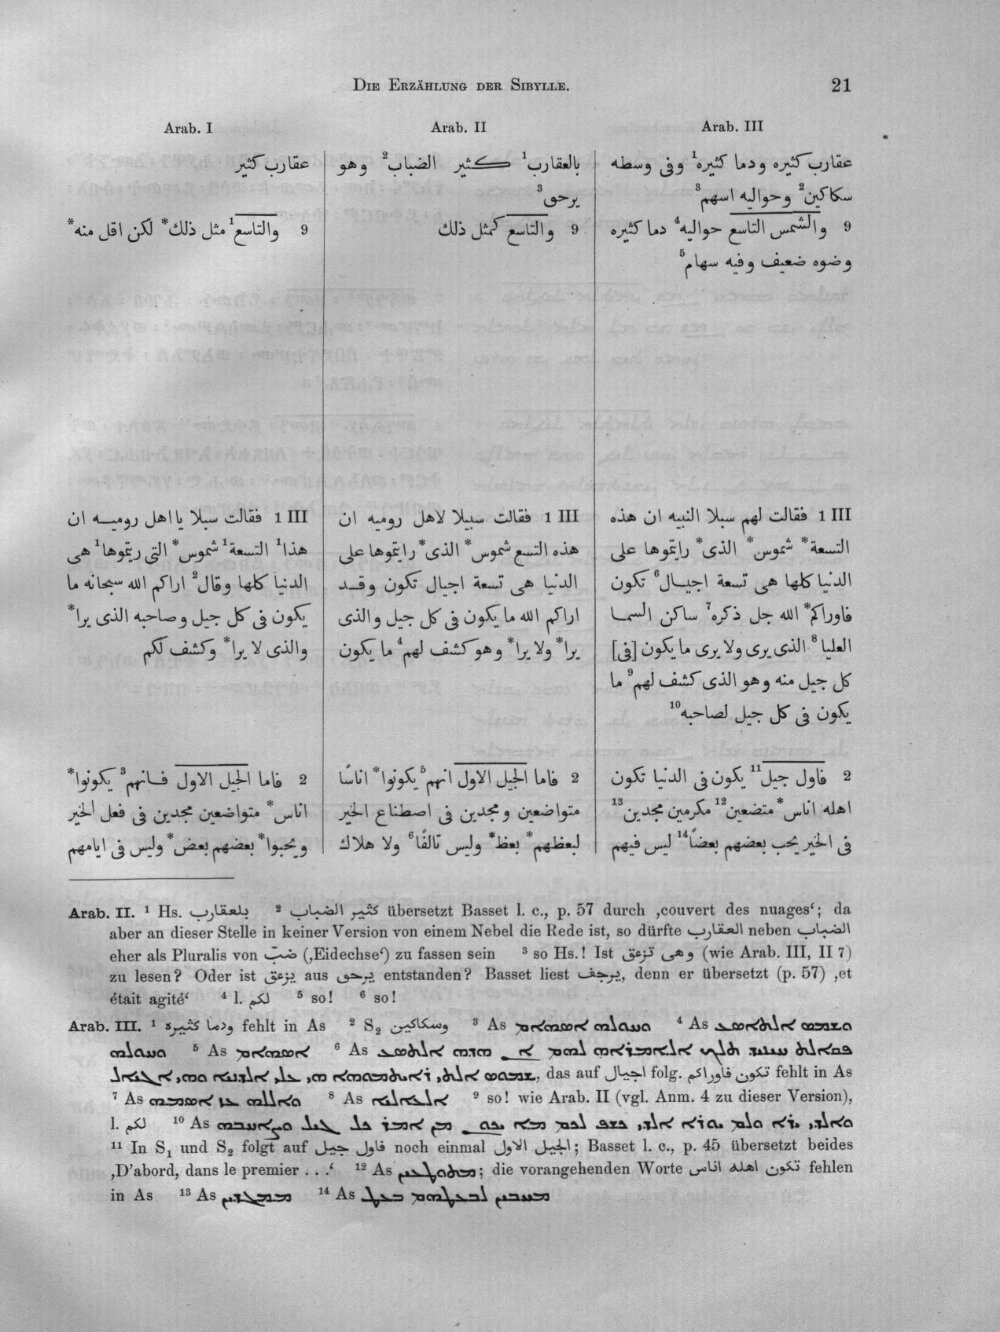 DIE ERZÄHLUNG DER SIBYLLE. 21
Arab. I
عقارب كثير
9 والتاسع¹ مثل ذلك* لكن اقل منه*
III 1 فقالت سبلا يااهل روميه ان
هذا¹ التسعة¹ شموس* التى ريتموها¹ هى
الدنيا كلها وقال² اراكم الله سبحانه ما
يكون فى كل جيل وصاحبه الذى يرا*
والذى لا يرا* وكشف لكم
2 فاما الجيل الاول فانهم³ يكونوا*
اناس* متواضعين مجدين فى فعل الخير
ويحبوا* بعضهم بعض* وليس فى ايامهم
Arab. II
بالعقارب¹ كثير الضباب² وهو
يرحق³
9 والتاسع كمثل ذلك
III 1 فقالت سبيلا لاهل روميه ان
هذه التسع شموس* الذى* رايتموها على
الدنيا هى تسعة اجيال تكون وقد
اراكم الله ما يكون فى كل جيل والذى
يرا* ولا يرا* وهو كشف لهم⁴ ما يكون
2 فاما الجيل الاول انهم⁵ يكونوا* اناسًا
متواضعين ومجدين فى اصطناع الخير
لبعظهم* بعظ* وليس تالفًا⁶ ولا هلاك
Arab. III
عقارب كثيره ودما كثيره¹ وفى وسطه
سكاكين² وحواليه اسهم³
9 والشمس التاسع حواليه⁴ دما كثيره
وضوه ضعيف وفيه سهام⁵
III 1 فقالت لهم سبلا النبيه ان هذه
التسعة* شموس* الذى* رايتموها على
الدنيا كلها هى تسعة اجيال⁶ تكون
فاوراكم* الله جل ذكره⁷ ساكن السما
العليا⁸ الذى يرى ولا يرى ما يكون [فى]
كل جيل منه وهو الذى كشف لهم⁹ ما
يكون فى كل جيل لصاحبه¹⁰
2 فاول جيل¹¹ يكون فى الدنيا تكون
اهله اناس* متضعين¹² مكرمين مجدين¹³
فى الخير يحب بعضهم بعضاً¹⁴ ليس فيهم
Arab. II. ¹ Hs. بلعقارب ² كثير الضباب übersetzt Basset l. c., p. 57 durch ‚couvert des nuages‘; da
aber an dieser Stelle in keiner Version von einem Nebel die Rede ist, so dürfte العقارب neben الضباب
eher als Pluralis von ضبّ (‚Eidechse‘) zu fassen sein ³ so Hs.! Ist وهى تزعق (wie Arab. III, II 7)
zu lesen? Oder ist يزعق aus يرحق entstanden? Basset liest يرجف, denn er übersetzt (p. 57) ‚et
était agité‘ ⁴ l. لكم ⁵ so! ⁶ so!
Arab. III. ¹ ودما كثيره fehlt in As ² S₂ وسكاكين ³ As ⁴ As
⁵ As ⁶ As
das auf اجيال folg. تكون فاوراكم fehlt in As
⁷ As ⁸ As ⁹ so! wie Arab. II (vgl. Anm. 4 zu dieser Version),
l. لكم ¹⁰ As
¹¹ In S₁ und S₂ folgt auf فاول جيل noch einmal الجيل الاول; Basset l. c., p. 45 übersetzt beides
‚D’abord, dans le premier . . .‘ ¹² As ; die vorangehenden Worte تكون اهله اناس fehlen
in As ¹³ As ¹⁴ As